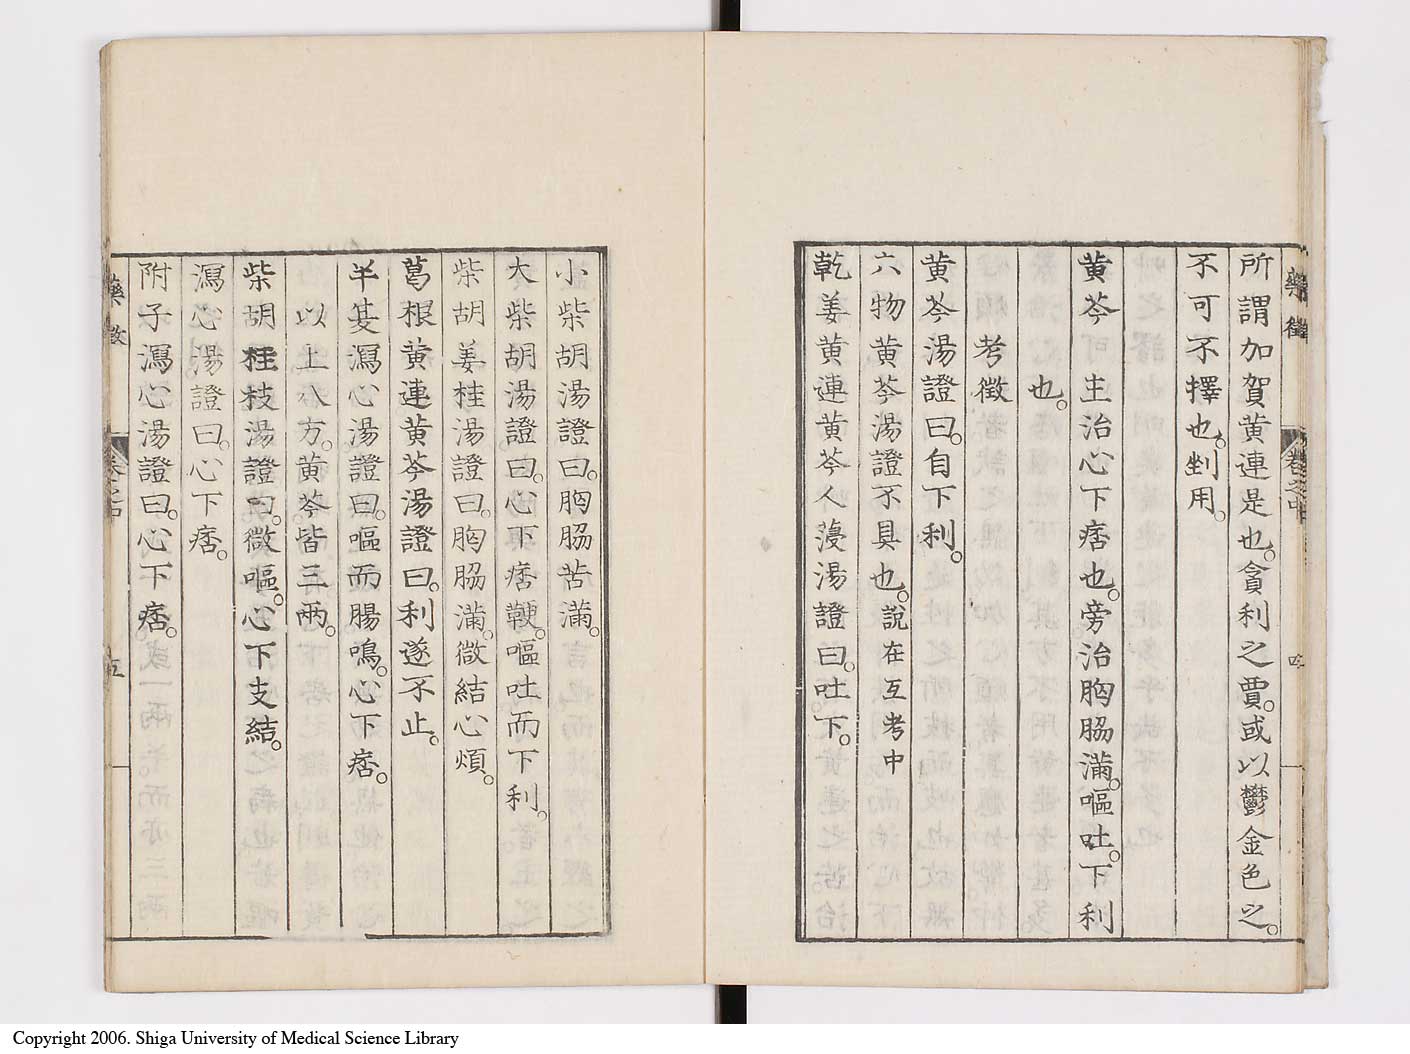 所謂加賀黄連是也。貪利之賈。或以鬱金色之。
不可不擇也。剉用。
黄芩 主治心下痞也。旁治胸脇滿。嘔吐。下利
也。
考徵
黄芩湯證曰。自下利。
六物黄芩湯證不具也。説在互考中
乾姜黄連黄芩人薓湯證曰。吐下。
藥徵
卷之中
小柴胡湯證曰。胸脇苦滿。
大柴胡湯證曰。心下痞鞕。嘔吐而下利。
柴胡姜桂湯證曰。胸脇滿。微結心煩。
葛根黄連黄芩湯證曰。利遂不止。
半夏瀉心湯證曰。嘔而腸鳴。心下痞。
以上八方。黄芩皆三兩。
柴胡桂枝湯證曰。微嘔。心下支結。
瀉心湯證曰。心下痞。
附子瀉心湯證曰。心下痞。
藥徵
卷之中
五
Copyright 2006. Shiga University of Medical Science Library